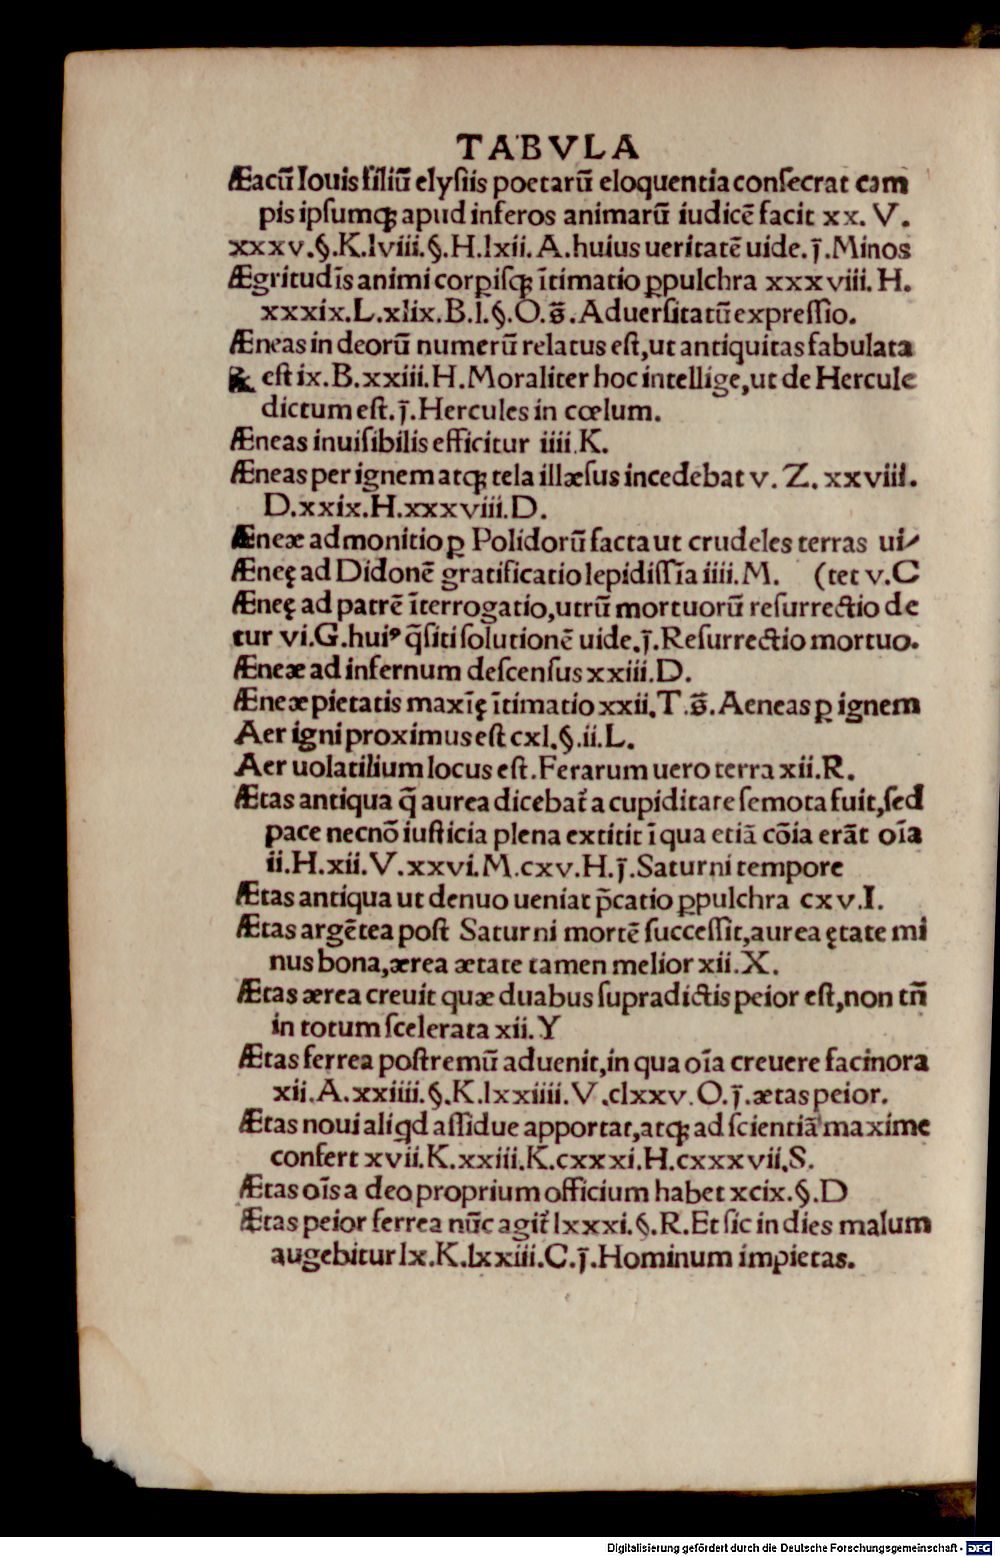 TABVLA
Æacū Iouis filiū elysiis poetarū eloquentia consecrat cam
pis ipsumqꝫ apud inferos animarū iudicē facit xx. V.
xxxv.§.K.lviii.§.H.lxii.A.huius ueritatē uide.j̄.Minos
Ægritudīs animi corꝑisqꝫ ītimatio ꝑpulchra xxxviii.H.
xxxix.L.xlix.B.l.§.O.s̄.Aduersitatū expressio.
Æneas in deorū numerū relatus est,ut antiquitas fabulata
est ix.B.xxiii.H.Moraliter hoc intellige,ut de Hercule
dictum est.j̄.Hercules in cœlum.
Æneas inuisibilis efficitur iiii.K.
Æneas per ignem atqꝫ tela illæsus incedebat v. Z. xxviii.
D.xxix.H.xxxviii.D.
Æneæ admonitio ꝑ Polidorū facta ut crudeles terras ui⸗
Æneę ad Didonē gratificatio lepidissīa iiii.M. (tet v.C
Æneę ad patrē īterrogatio,utrū mortuorū resurrectio de
tur vi.G.huiꝰ q̄siti solutionē uide.j̄.Resurrectio mortuo.
Æneæ ad infernum descensus xxiii.D.
Æneæ pietatis maxīę ītimatio xxii.T.s̄.Aeneas ꝑ ignem
Aer igni proximus est cxl.§.ii.L.
Aer uolatilium locus est.Ferarum uero terra xii.R.
Ætas antiqua q̄ aurea dicebat̄ a cupiditate semota fuit,sed
pace necnō iusticia plena extitit ī qua etiā cōia erāt oīa
ii.H.xii.V.xxvi.M.cxv.H.j̄.Saturni tempore
Ætas antiqua ut denuo ueniat p̄catio ꝑpulchra cxv.I.
Ætas argētea post Saturni mortē successit,aurea ętate mi
nus bona,ærea ætate tamen melior xii.X.
Ætas ærea creuit quæ duabus supradictis peior est,non tn̄
in totum scelerata xii.Y
Ætas ferrea postremū aduenit,in qua oīa creuere facinora
xii.A.xxiiii.§.K.lxxiiii.V.clxxv.O.j̄.ætas peior.
Ætas noui aliqd assidue apportat,atqꝫ ad scientiā maxime
confert xvii.K.xxiii.K.cxxxi.H.cxxxvii.S.
Ætas oīs a deo proprium officium habet xcix.§.D
Ætas peior ferrea nūc agit̄ lxxxi.§.R.Et sic in dies malum
augebitur lx.K.lxxiii.C.j̄.Hominum impietas.
Digitalisierung gefördert durch die Deutsche Forschungsgemeinschaft - DFG